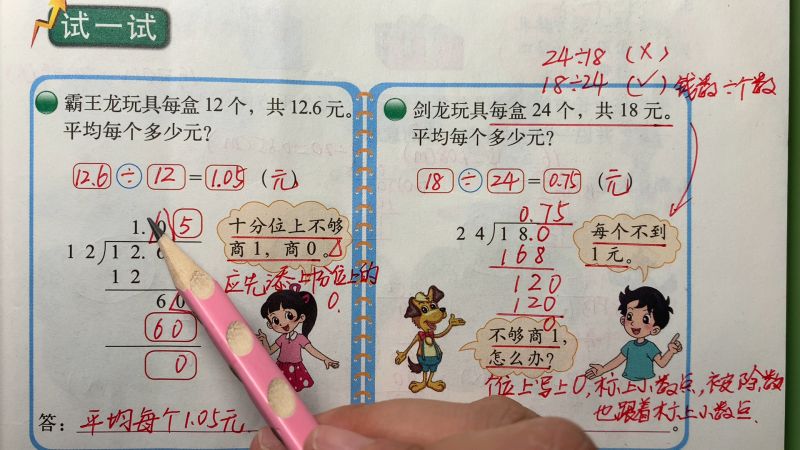 试一试
24÷18 (×)
18÷24 (√) 钱数÷个数
霸王龙玩具每盒12个，共12.6元。
平均每个多少元？
12.6÷12=1.05（元）
1.05
12)12.6
12
60
60
0
十分位上不够
商1，商0。
应先添上十分位上的
0.
答：平均每个1.05元
剑龙玩具每盒24个，共18元。
平均每个多少元？
18÷24=0.75（元）
0.75
24)18.0
168
120
120
0
每个不到
1元。
不够商1，
怎么办？
个位上写上0，标上小数点，被除数
也跟着标上小数点.